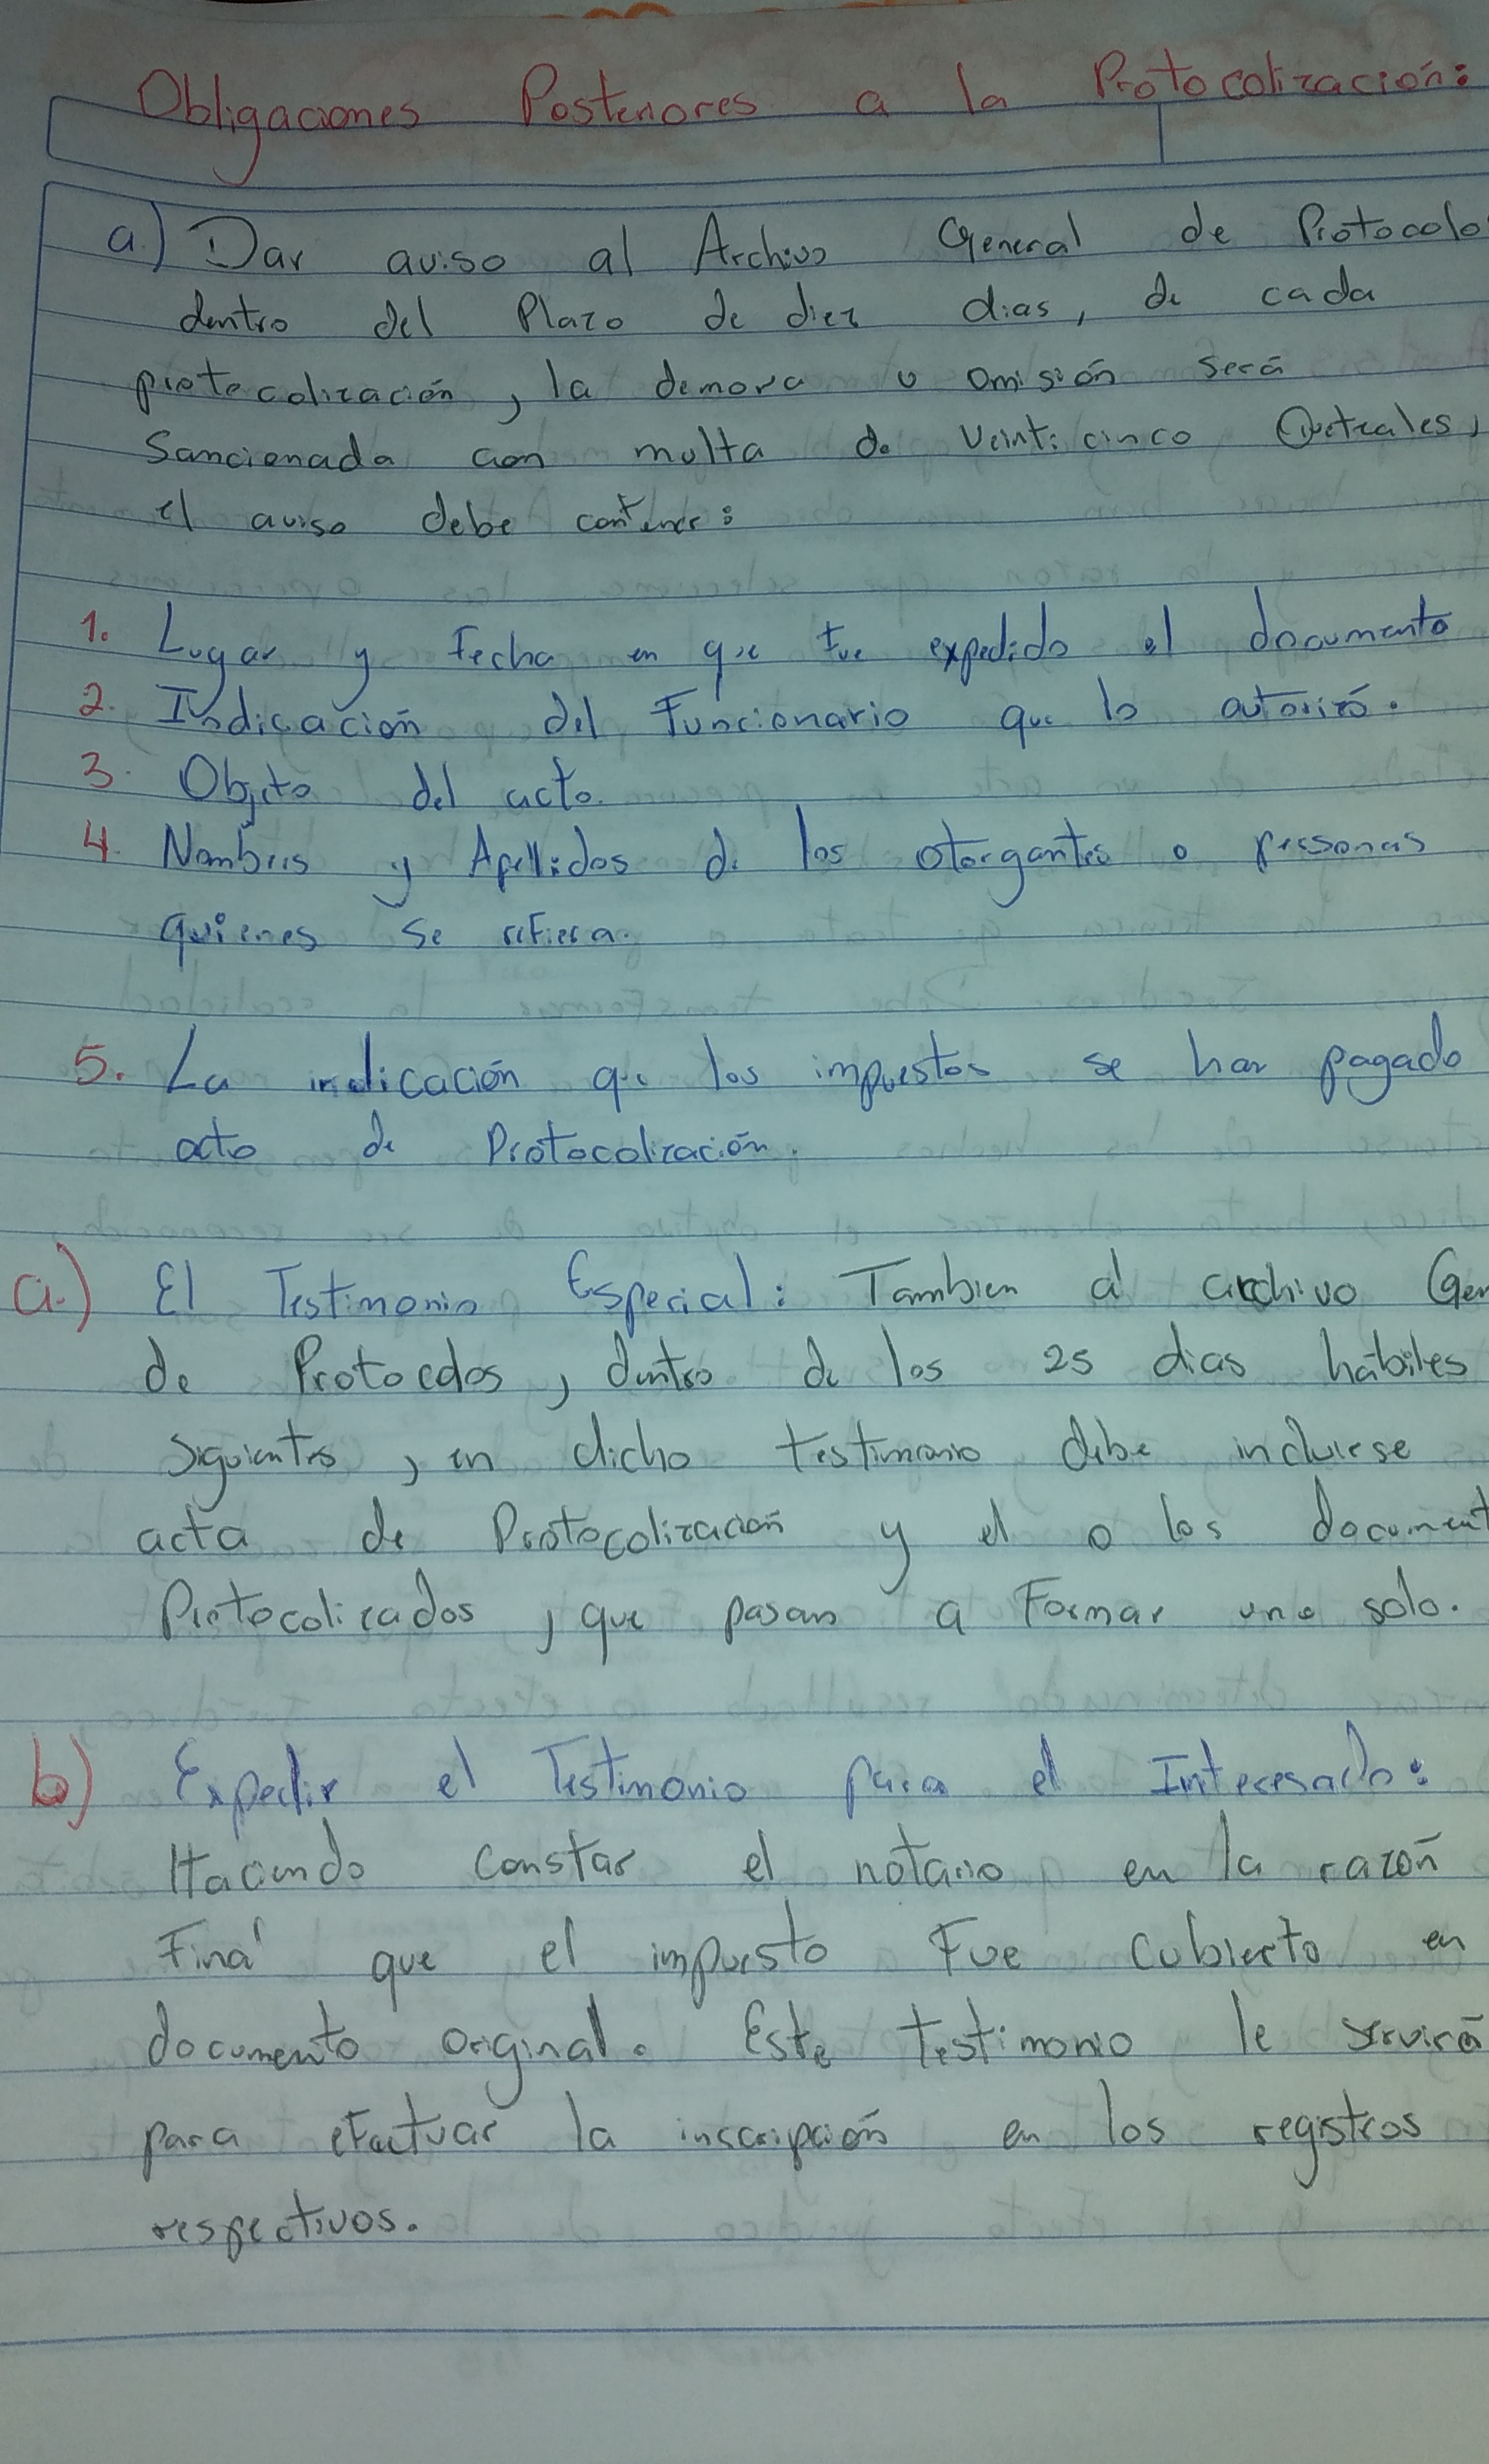 Obligaciones Posteriores a la Protocolización:
a.) Dar aviso al Archivo General de Protocolo
dentro del Plazo de diez dias, de cada
protocolización, la demora u omisión será
Sancionada con multa de Veinticinco Quetzales,
el aviso debe contener:
1. Lugar y Fecha en que fue expedido el documento
2. Indicación del Funcionario que lo autorizó.
3. Objeto del acto.
4. Nombres y Apellidos de los otorgantes o personas
quienes se refiera.
5. La indicación que los impuestos se han pagado
acto de Protocolización.
a.) El Testimonio Especial: Tambien al archivo Gen
de Protocolos, dentro de los 25 dias hábiles
siguientes, en dicho testimonio debe incluirse
acta de Protocolización y el o los document
Protocolizados, que pasan a Formar uno solo.
b) Expedir el Testimonio para el Interesado:
Haciendo constar el notario en la razón
Final que el impuesto Fue cubierto en
documento original. Este testimonio le servirá
para efectuar la inscripción en los registros
respectivos.